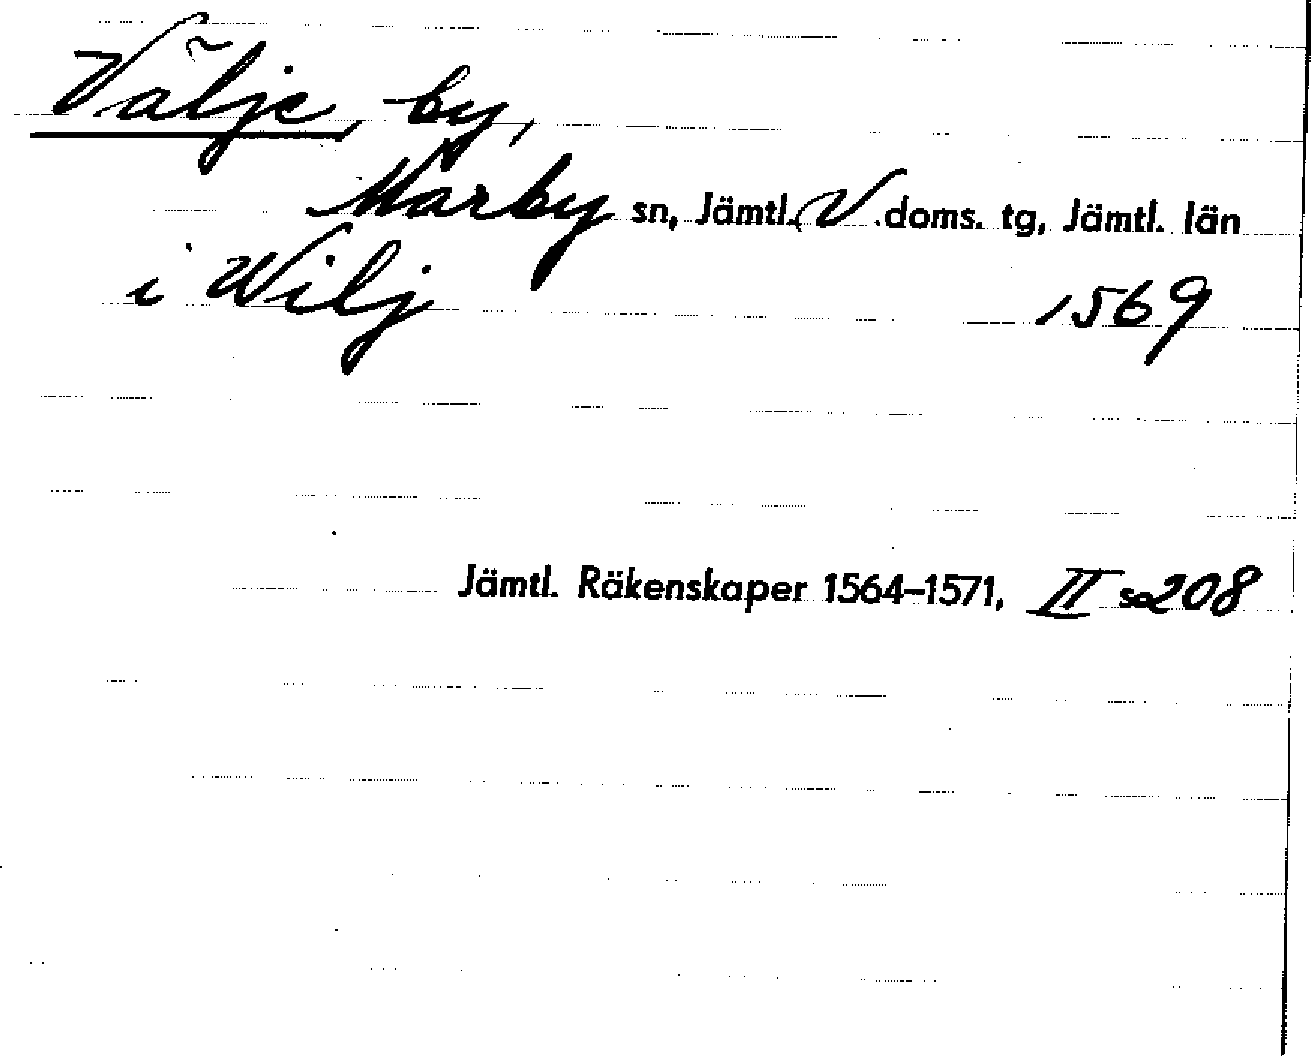 Välje, by,
Marby sn, Jämtl. V .doms. tg, Jämtl. län
i Wilj 1569
Jämtl. Räkenskaper 1564–1571, II s. 208